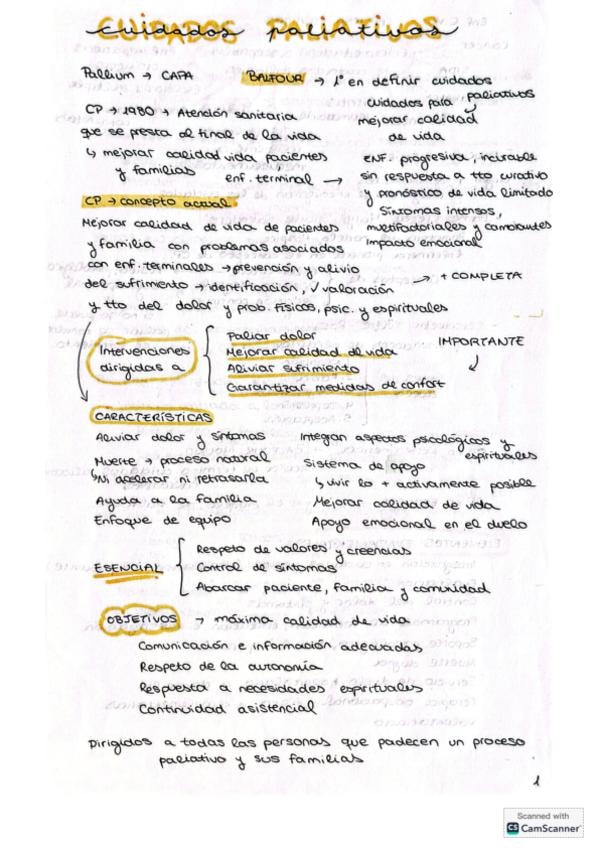 CUIDADOS PALIATIVOS
Pallium → CAPA
BALFOUR → 1º en definir cuidados paliativos
cuidados para mejorar calidad de vida
CP → 1980 → Atención sanitaria
que se presta al final de la vida
↳ mejorar calidad vida pacientes
y familias
enf. terminal →
ENF. progresiva, incurable
sin respuesta a tto curativo
y pronóstico de vida limitado
Síntomas intensos,
multifactoriales y cambiantes
impacto emocional
CP → concepto actual
Mejorar calidad de vida de pacientes
y familia con problemas asociados
con enf. terminales → prevención y alivio
del sufrimiento → identificación, √ valoración
→ + COMPLETA
y tto del dolor y prob. físicos, psic. y espirituales
Intervenciones
dirigidas a
Paliar dolor
Mejorar calidad de vida
Aliviar sufrimiento
Garantizar medidas de confort
IMPORTANTE
CARACTERÍSTICAS
Aliviar dolor y síntomas
Muerte → proceso natural
↳ Ni acelerar ni retrasarla
Ayuda a la familia
Enfoque de equipo
Integrar aspectos psicológicos y
espirituales
Sistema de apoyo
↳ vivir lo + activamente posible
Mejorar calidad de vida
Apoyo emocional en el duelo
ESENCIAL
Respeto de valores y creencias
Control de síntomas
Abarcar paciente, familia y comunidad
OBJETIVOS → máxima calidad de vida
Comunicación e información adecuadas
Respeto de la autonomía
Respuesta a necesidades espirituales
Continuidad asistencial
Dirigidos a todas las personas que padecen un proceso
paliativo y sus familias
1
Scanned with
CS CamScanner